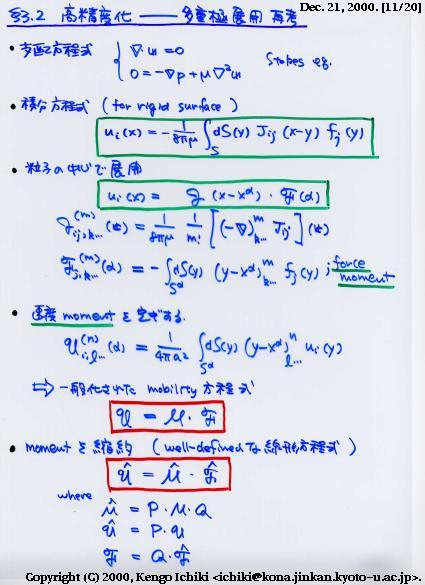 Dec. 21, 2000. [11/20]
§3.2 高精度化 —— 多重極展開再考
• 支配方程式 { ∇·u = 0
0 = -∇p + μ∇²u Stokes eq.
• 積分方程式 (for rigid surface)
uᵢ(x) = - 1/8πμ ∫_S dS(y) Jᵢⱼ (x-y) fⱼ(y)
• 粒子の中心で展開
uᵢ(x) = 𝒢 (x-x^α) · ℱ(α)
𝒢^(m)_{ij,k...}(x) = 1/8πμ 1/m! [(-∇)^m_{k...} Jᵢⱼ](x)
ℱ^(m)_{j,k...}(α) = -∫_{S^α} dS(y) (y-x^α)^m_{k...} fⱼ(y) ; force moment
• 速度 moment を定義する.
𝒰^(n)_{i,l...}(α) = 1/4πa² ∫_{S^α} dS(y) (y-x^α)^n_{l...} uᵢ(y)
⇨ 一般化された mobility 方程式
𝒰 = ℳ · ℱ
• moment を縮約 (well-defined な線形方程式)
𝒰̂ = ℳ̂ · ℱ̂
where
ℳ̂ = P · ℳ · Q
𝒰̂ = P · 𝒰
ℱ = Q · ℱ̂
Copyright (C) 2000, Kengo Ichiki <ichiki@kona.jinkan.kyoto-u.ac.jp>.